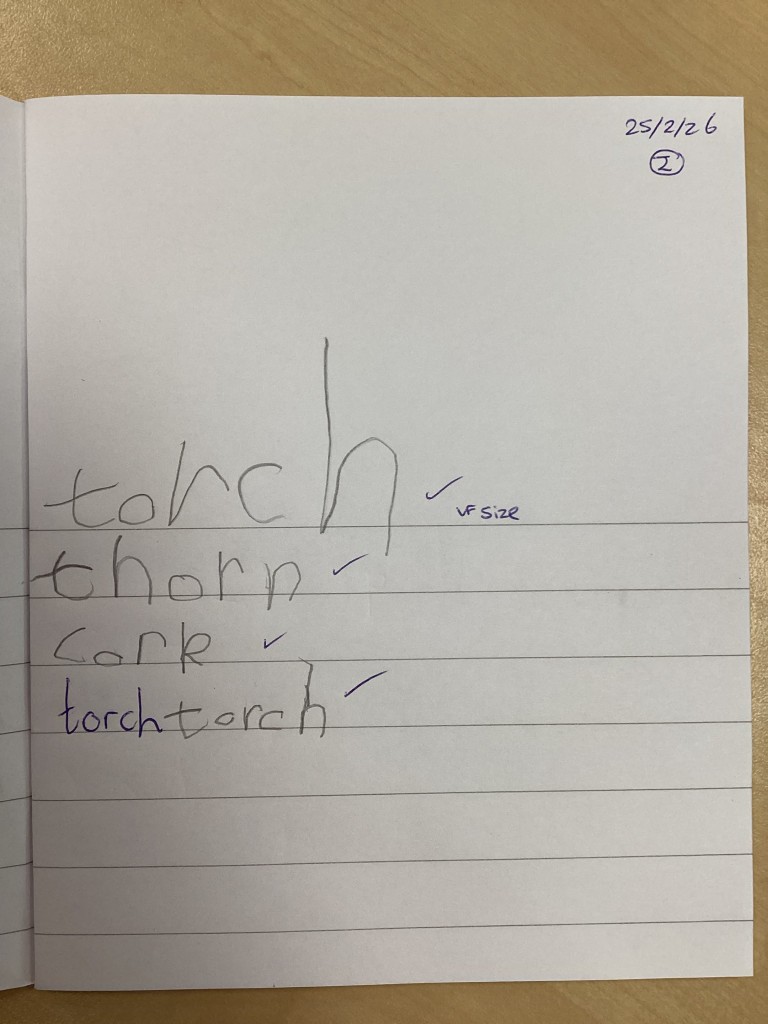 25/2/26
I
torch ✓
VF size
thorn ✓
cork ✓
torch torch ✓